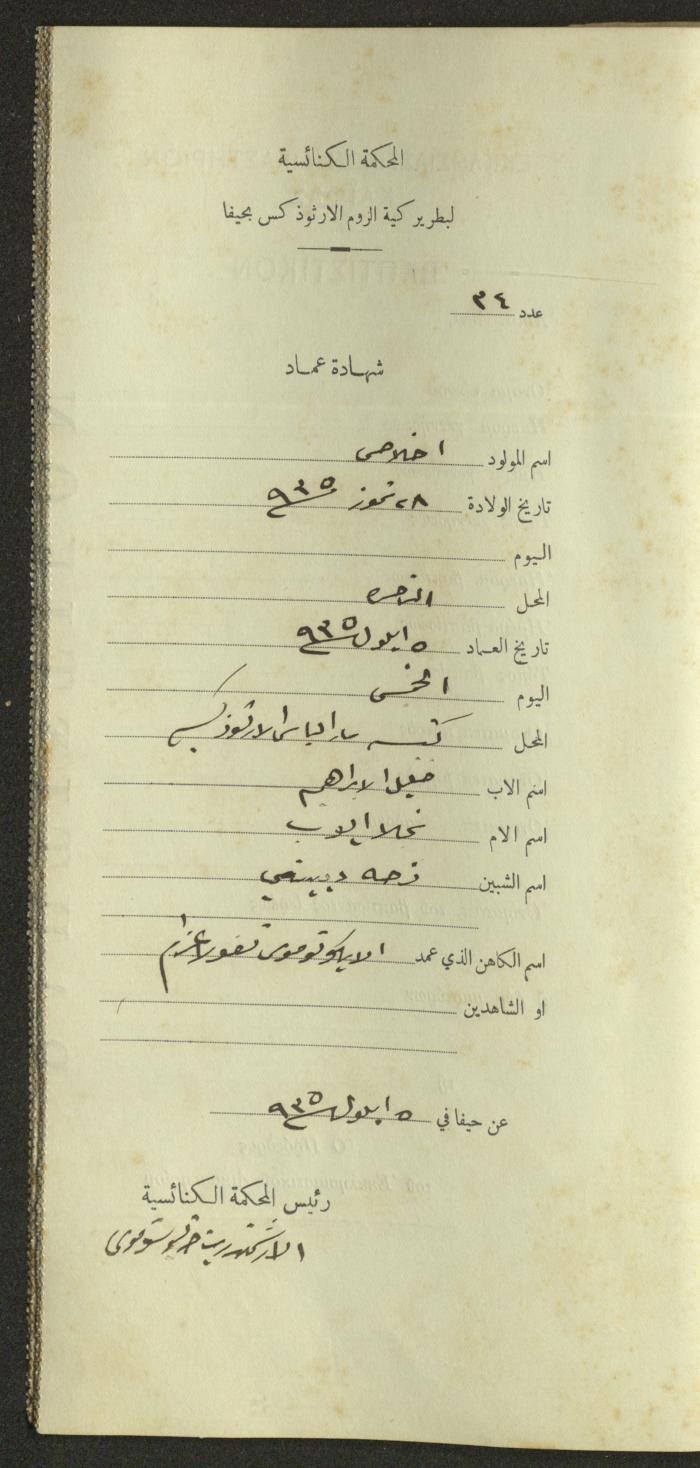 المحكمة الكنائسية
لبطريركية الروم الارثوذكس بحيفا
عدد ٣٤
شهادة عماد
اسم المولود اخلاصي
تاريخ الولادة ٢٨ تموز ٩٣٥
اليوم
المحل الناصره
تاريخ العماد ٥ ايلول ٩٣٥
اليوم الخميس
المحل كنيسه مار الياس الارثوذكسيه
اسم الاب خليل الابراهيم
اسم الام نجلا ايوب
اسم الشبين فرحه
اسم الكاهن الذي عمد
او الشاهدين
عن حيفا في ٥ ايلول ٩٣٥
رئيس المحكمة الكنائسية
الارشمندريت